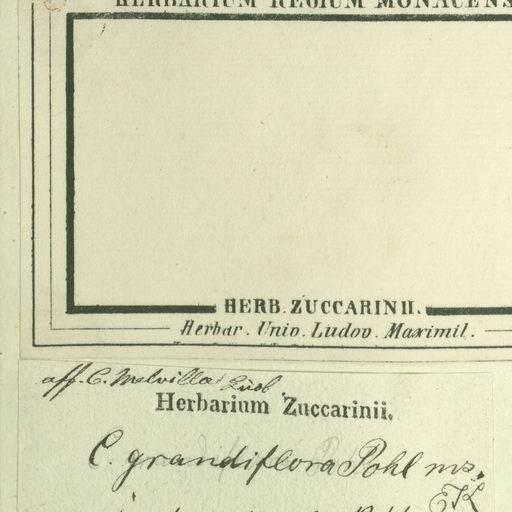 HERBARIUM REGIUM MONACENS
HERB. ZUCCARINII.
Herbar. Univ. Ludov. Maximil.
aff. C. Melvilla
Herbarium Zuccarinii.
C. grandiflora Pohl ms.